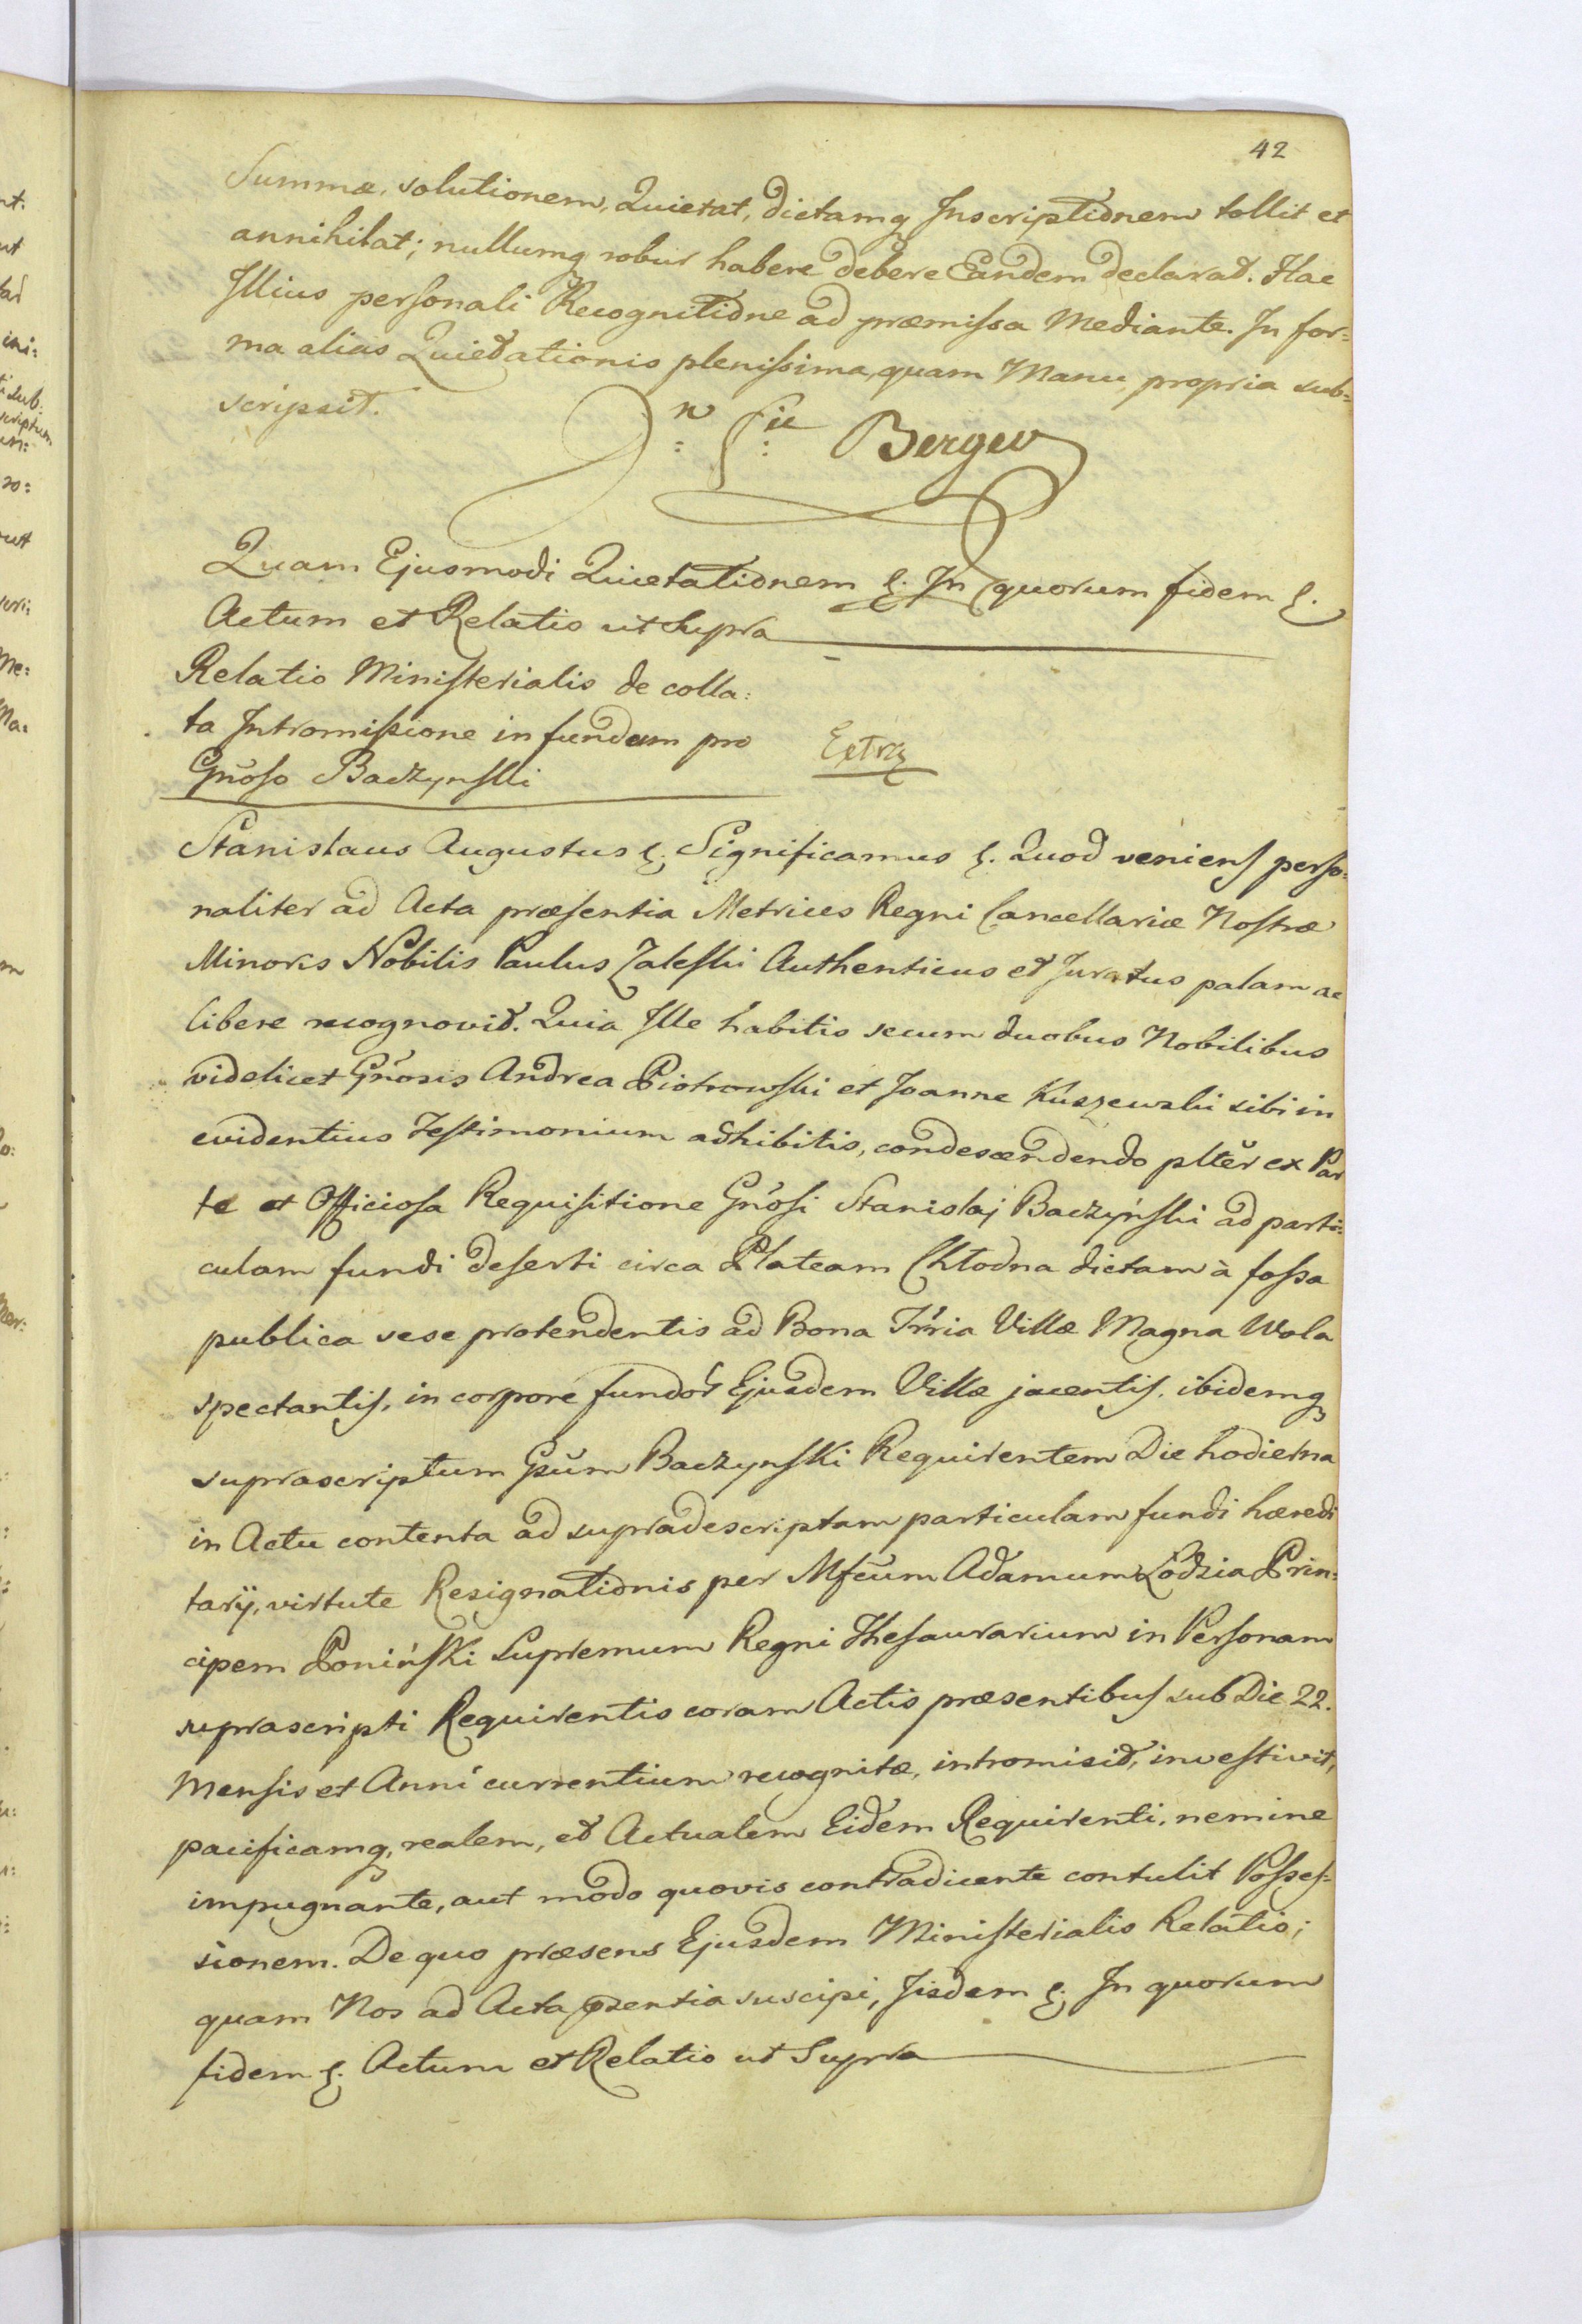 42
Summæ, solutionem, Quietat, dictamq Inscriptionem tollit et
annihilat; nullumq robur habere debere Eandem declarat. Hac
Illius personali Recognitione ad præmissa Mediante. In for=
ma alias Quietationis plenissima, quam Manu propria sub=
scripsit.
Berger
Quam Ejusmodi Quietationem &. In quorum fidem &.
Actum et Relatio ut supra
Relatio Ministerialis de colla:
ta Intromissione in fundum pro
Gnoso Baczynski
Extrz
Stanislaus Augustus &. Significamus &. Quod veniens perso:
naliter ad Acta præsentia Metrices Regni Cancellariæ Nostræ
Minoris Nobilis Paulus Zaleski Authenticus et Juratus palam ac
libere recognovit. Quia Ille habitis secum duobus Nobilibus
videlicet Gnosis Andrea Piotrowski et Joanne Kuszewski sibi in
evidentius Testimonium adhibitis, condescendendo plter ex Par
te et Officiosa Requisitione Gnosi Stanislaj Baczyński ad parti:
culam fundi deserti circa Plateam Chłodna dictam à fossa
publica sese protendentis ad Bona Trria Villæ Magna Wola
spectantis, in corpore fundor Ejusdem Villæ jacentis, ibidemq
suprascriptum Gsum Baczynski Requirentem Die hodierna
in Actu contenta ad supradescriptam particulam fundi hæredi
tarij, virtute Resignationis per Mfcum Adamum Lodzia Prin:
cipem Poniński Supremum Regni Thesaurarium in Personam
suprascripti Requirentis coram Actis præsentibus sub Die 22.
Mensis et Anni currentium recognitæ, intromisit, investivit,
pacificamq, realem, et Actualem Eidem Requirenti, nemine
impugnante, aut modo quovis contradicente contulit Posses:
sionem. De quo præsens Ejusdem Ministerialis Relatio;
quam Nos ad Acta præntia suscipi, Jisdem &. In quorum
fidem &. Actum et Relatio ut Supra